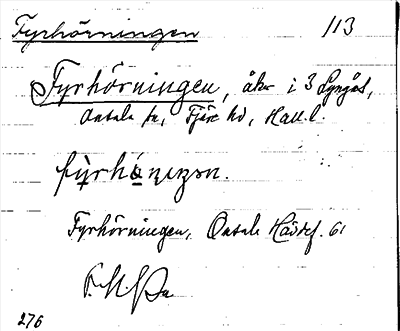 Fyrhörningen 113
Fyrhörningen, åker i 3 Lyngås,
Onsala sn, Fjäre hd, Hall. l.
Fyrhörningen, Onsala Hävdef. 61
276